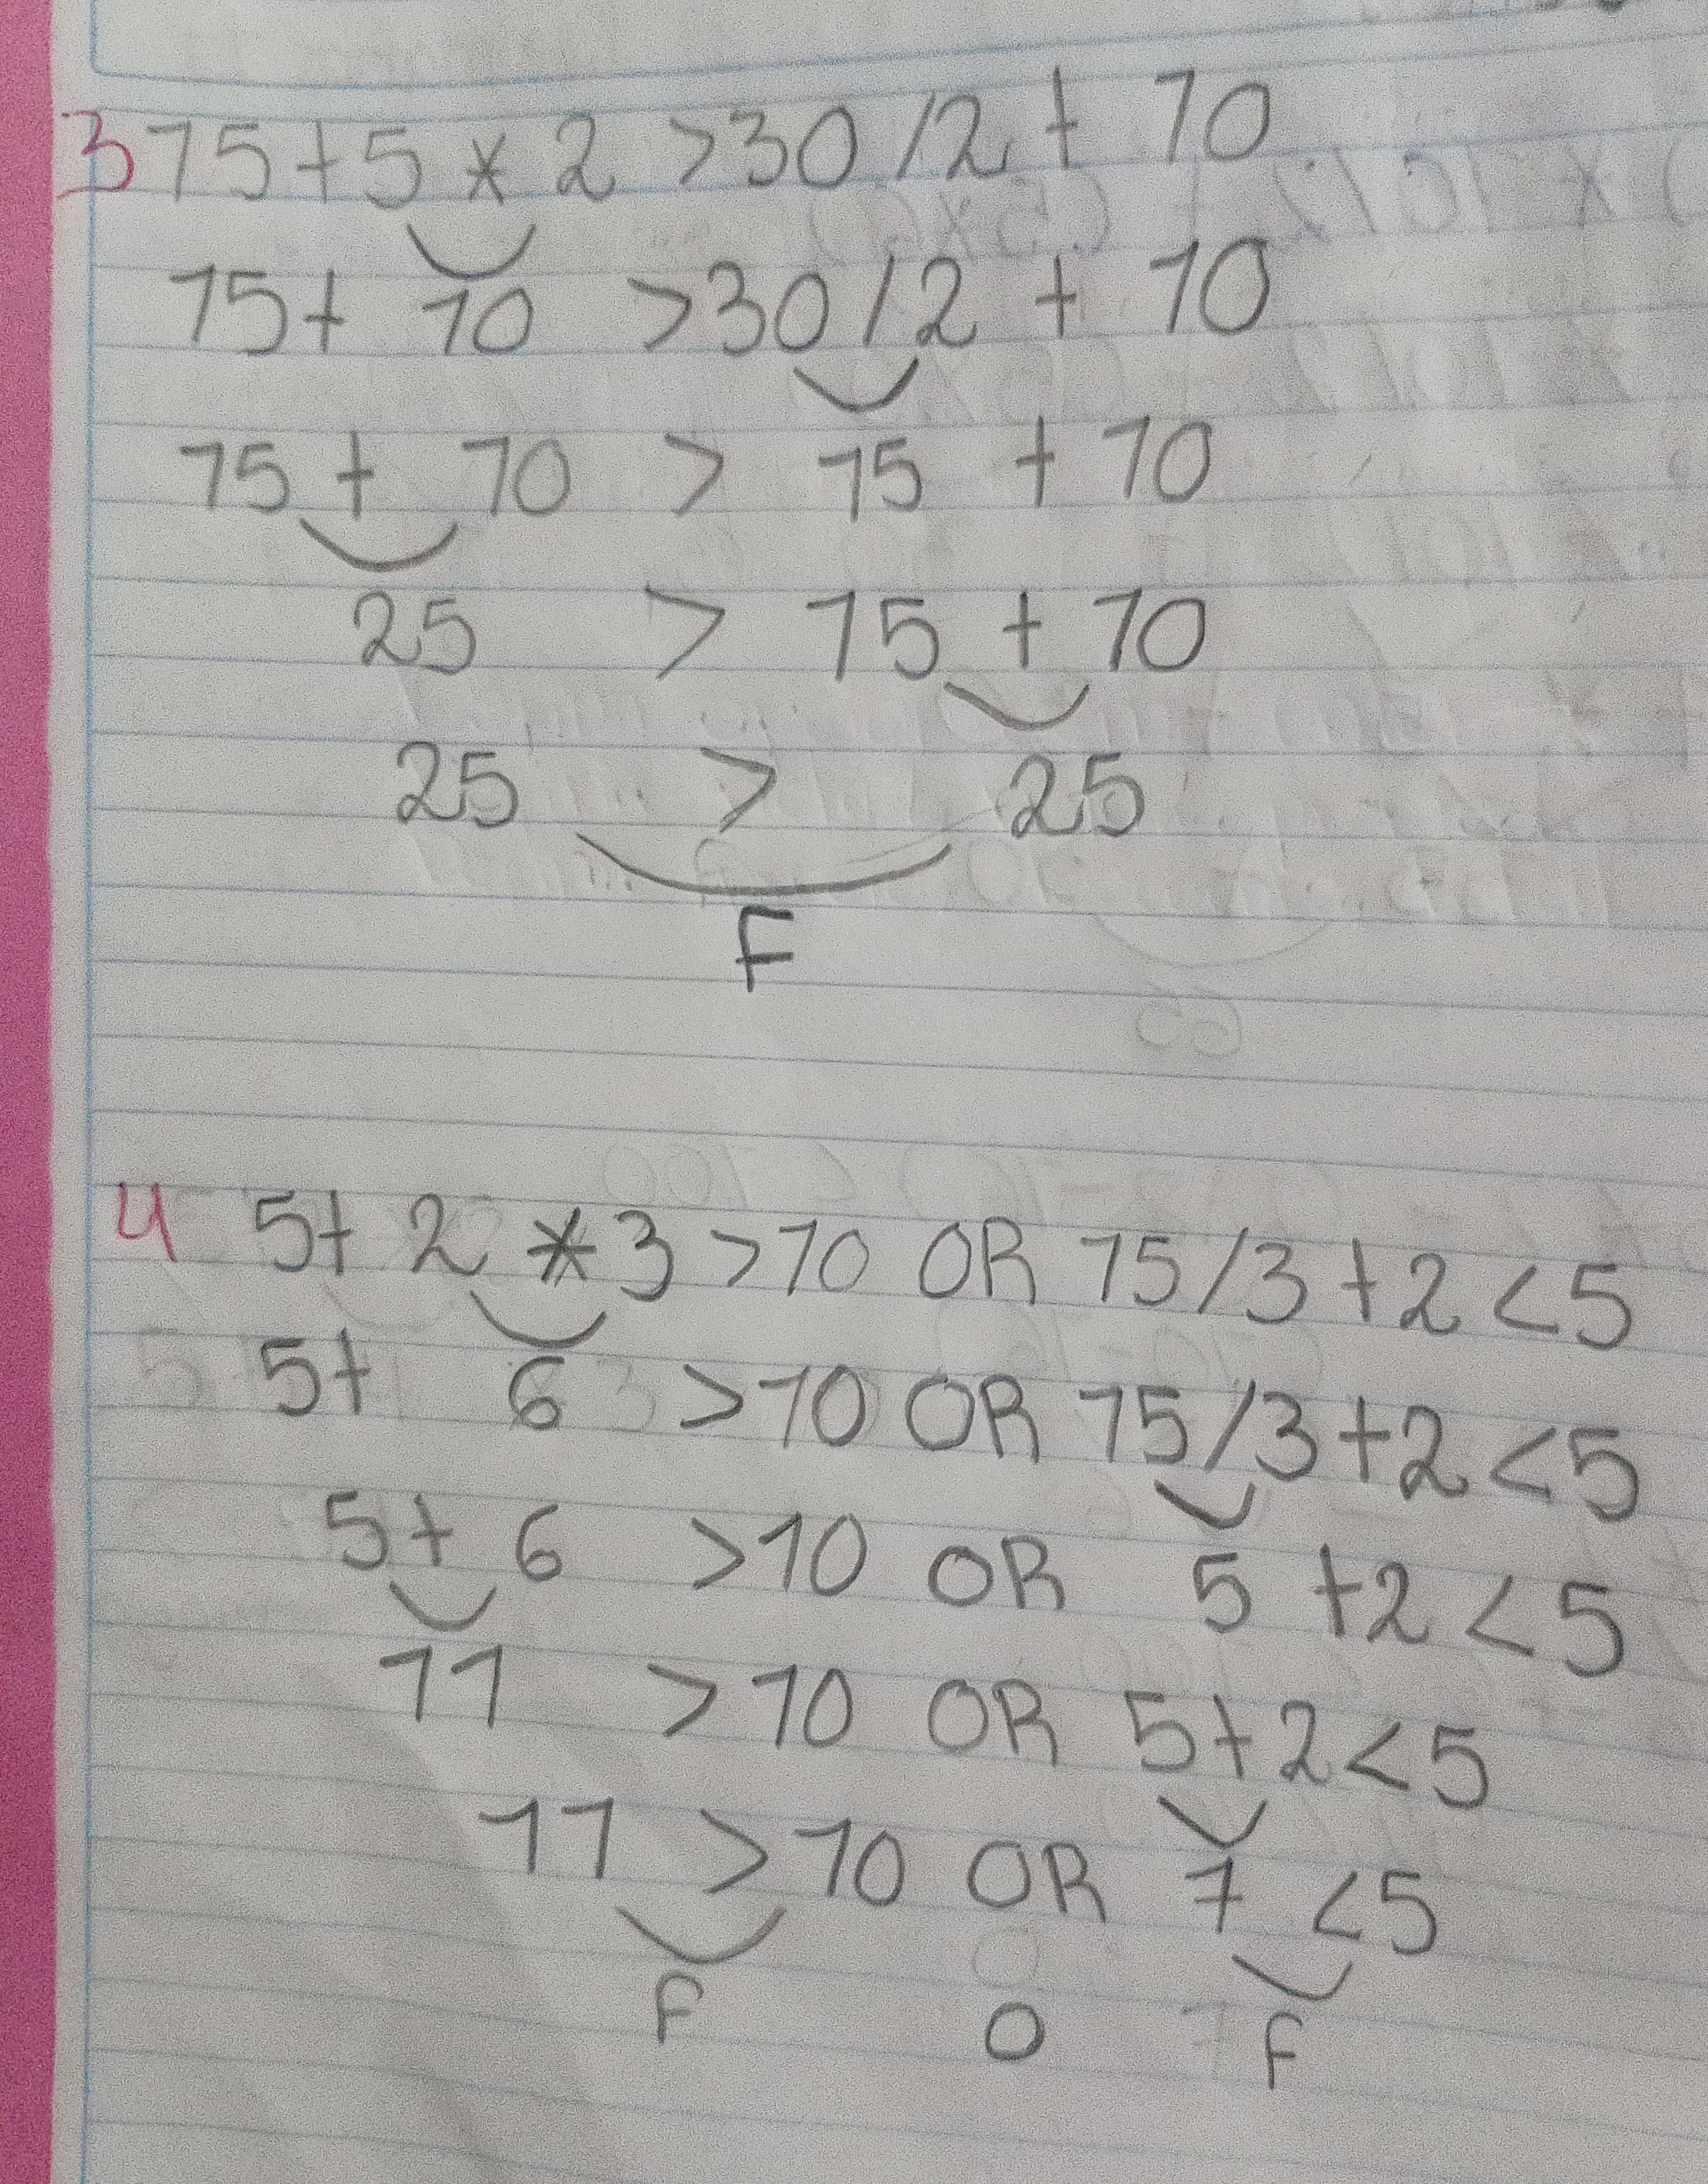 3 15+5*2 >30/2+10
15+ 10 >30/2 + 10
15 + 10 > 15 + 10
25 > 15 + 10
25 > 25
F
4 5+ 2 * 3 >10 OR 15/3+2<5
5+ 6 >10 OR 15/3+2<5
5+ 6 >10 OR 5 +2<5
11 >10 OR 5+2<5
11 >10 OR 7 <5
F O F